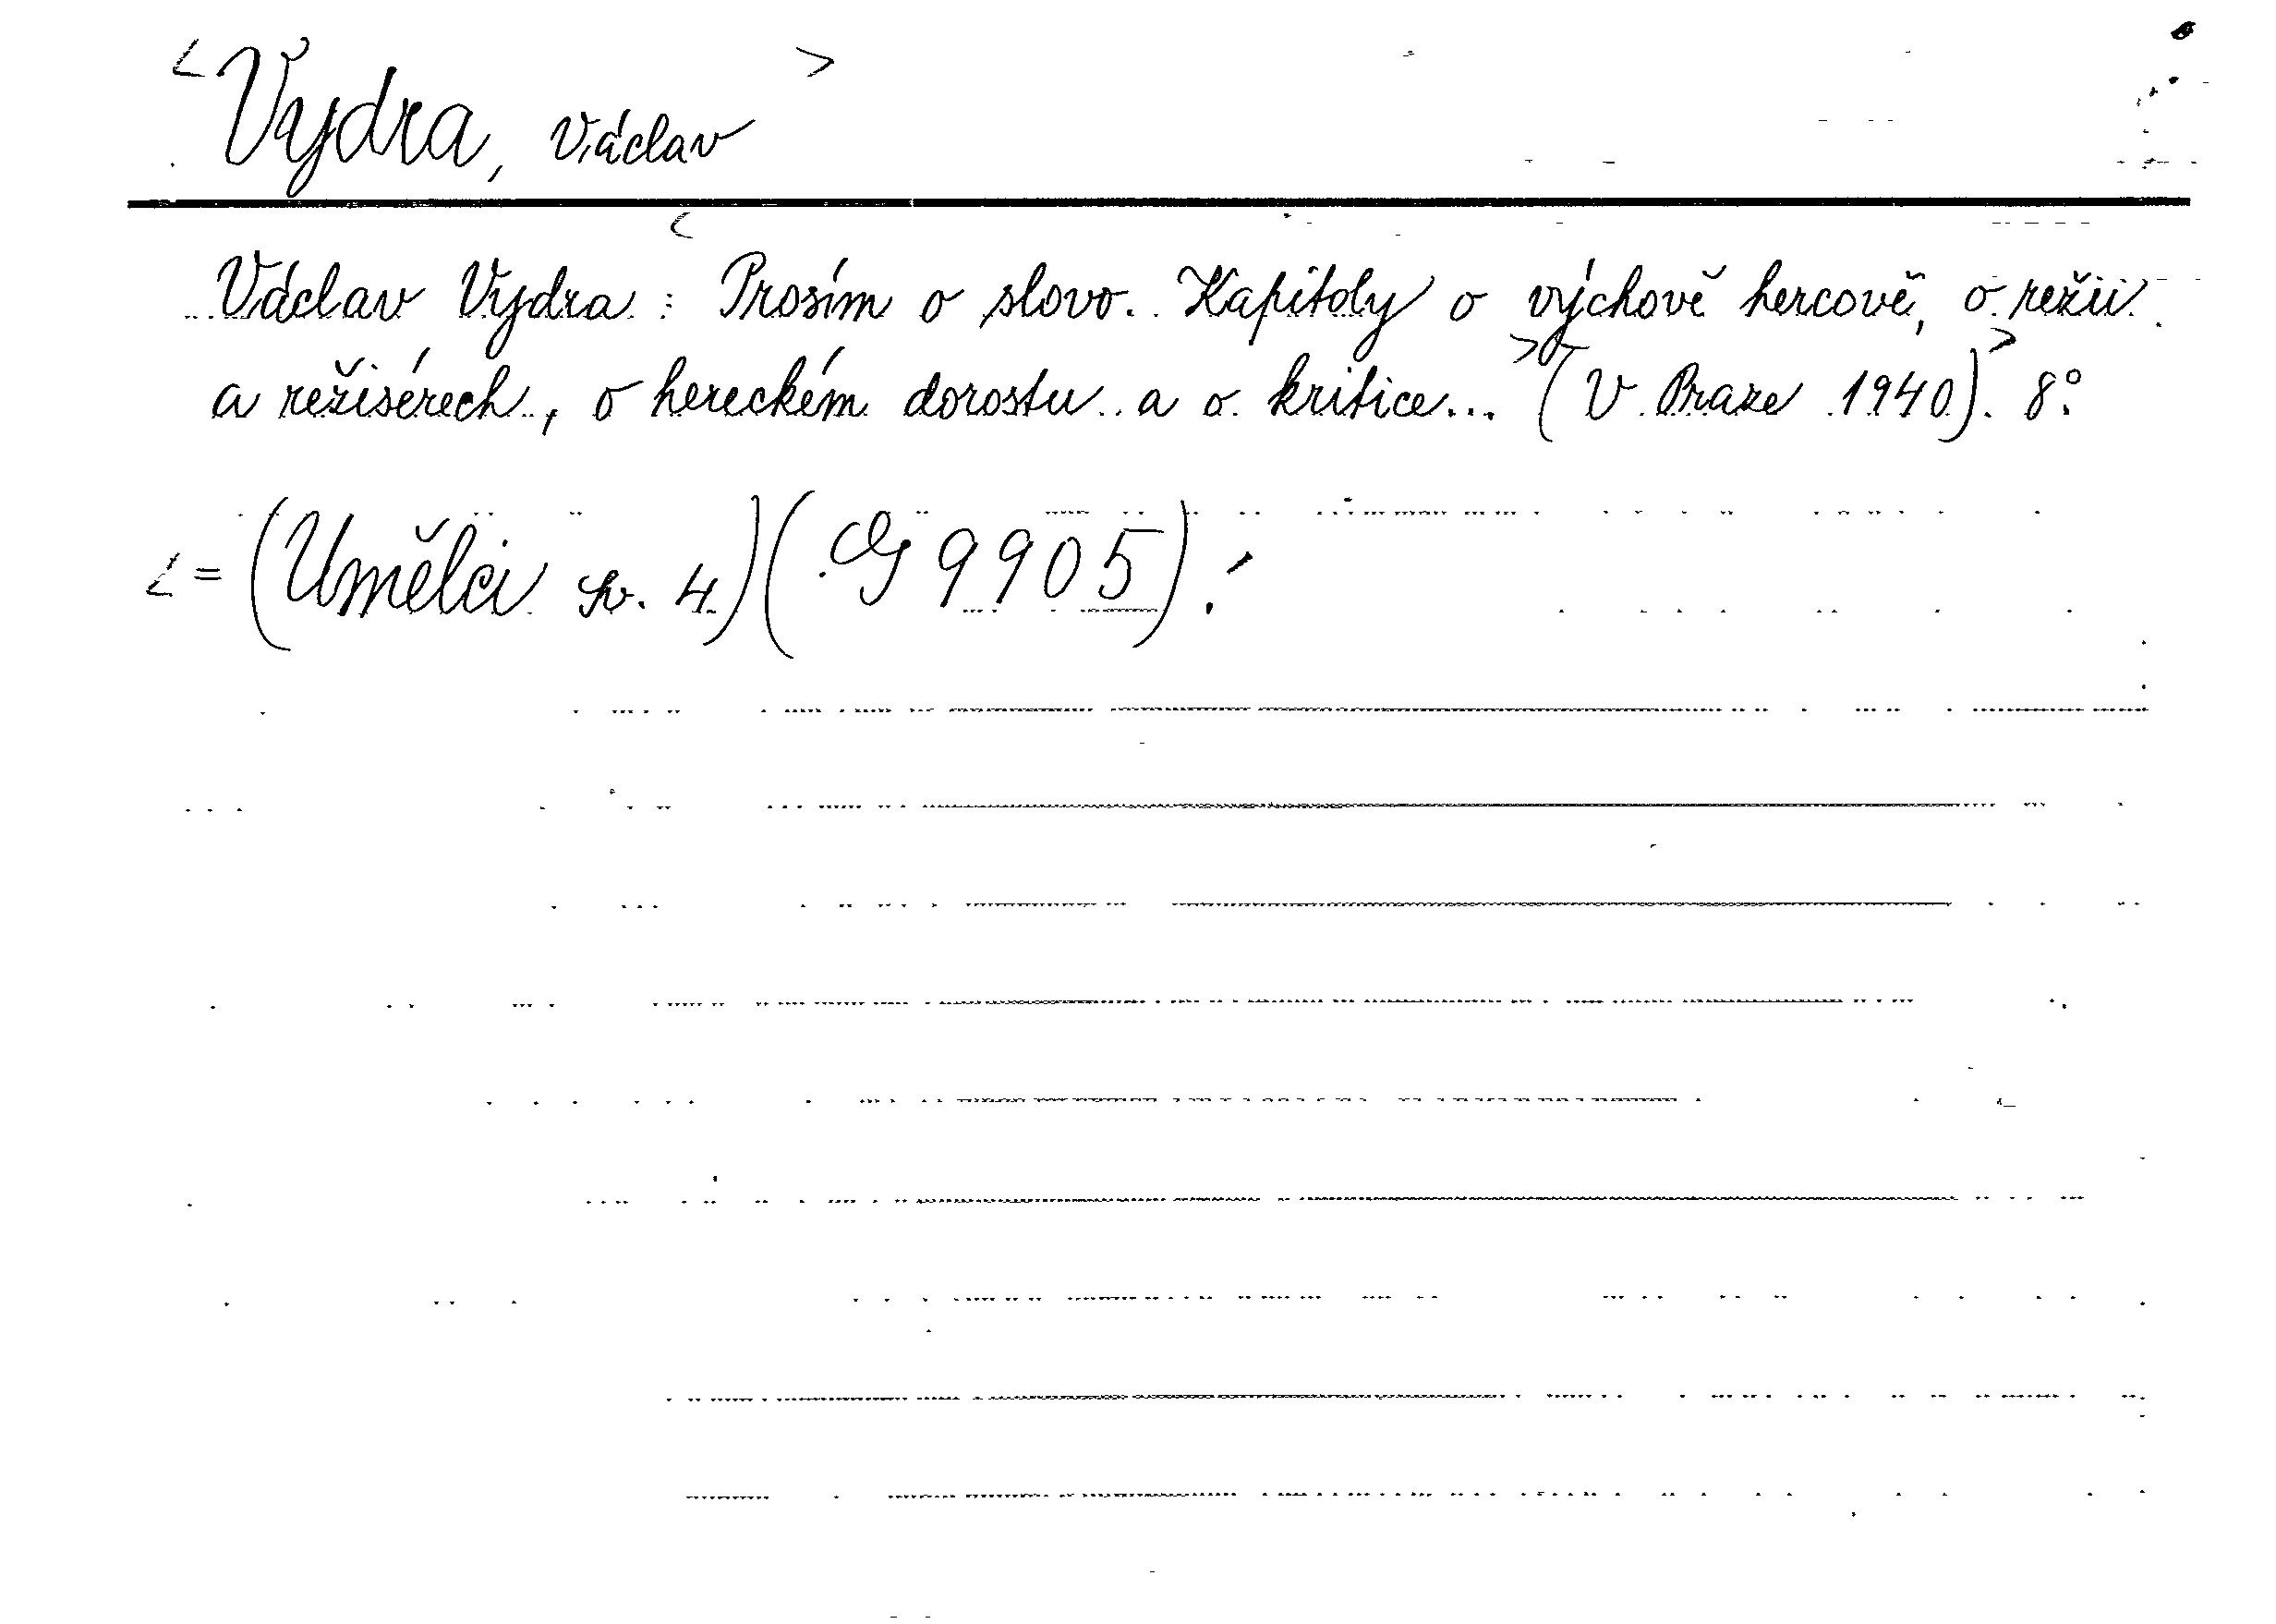 <Vydra, Václav>
Václav Vydra: <Prosím o slovo. Kapitoly o výchově hercově, o režii
a režisérech, o hereckém dorostu a o kritice...> (V Praze 1940).> 8°.
<= (Umělci sv. 4) (G 9905).